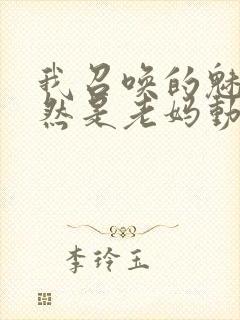 我召唤的魅
然是老妈動
李玲玉